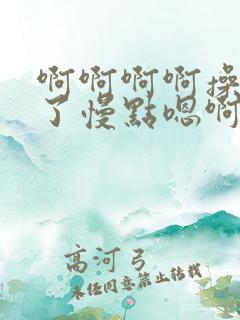 啊啊啊啊操
了慢點嗯啊
高河弓
未经同意禁止转载